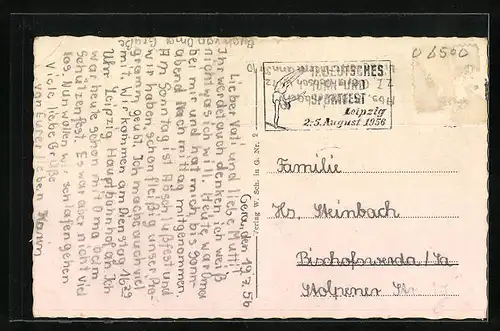 Geranden 19.7.56
Lieber Vati und liebe Mutti!
Ihr werdet auch denken ich weiß
nicht was ich will. Heute war Oma
bei mir und nahm mich bis Sonn-
abend Nachmittag mitgenommen.
Am Sonntag ist Abschlußfest und
wir haben schon fleißig unser Pro-
gramm geübt. Ich mache auch viel
mit. Wir kommen am Dienstag 16²⁹
Uhr Leipzig Hauptbahnhof an. Ich
war heute schon mit Oma beim
Schützenfest. Es war aber nicht viel
los. Nun wollen wir schlafen gehen
Viele liebe Grüße
von Eurer lieben
Verlag W. Sch. in G. Nr. 2
II. DEUTSCHES
TURN- UND
SPORTFEST
Leipzig
2.-5. August 1956
06500
Familie
Hs. Steinbach
Bischofswerda / Sa
Stolpener Str. 17